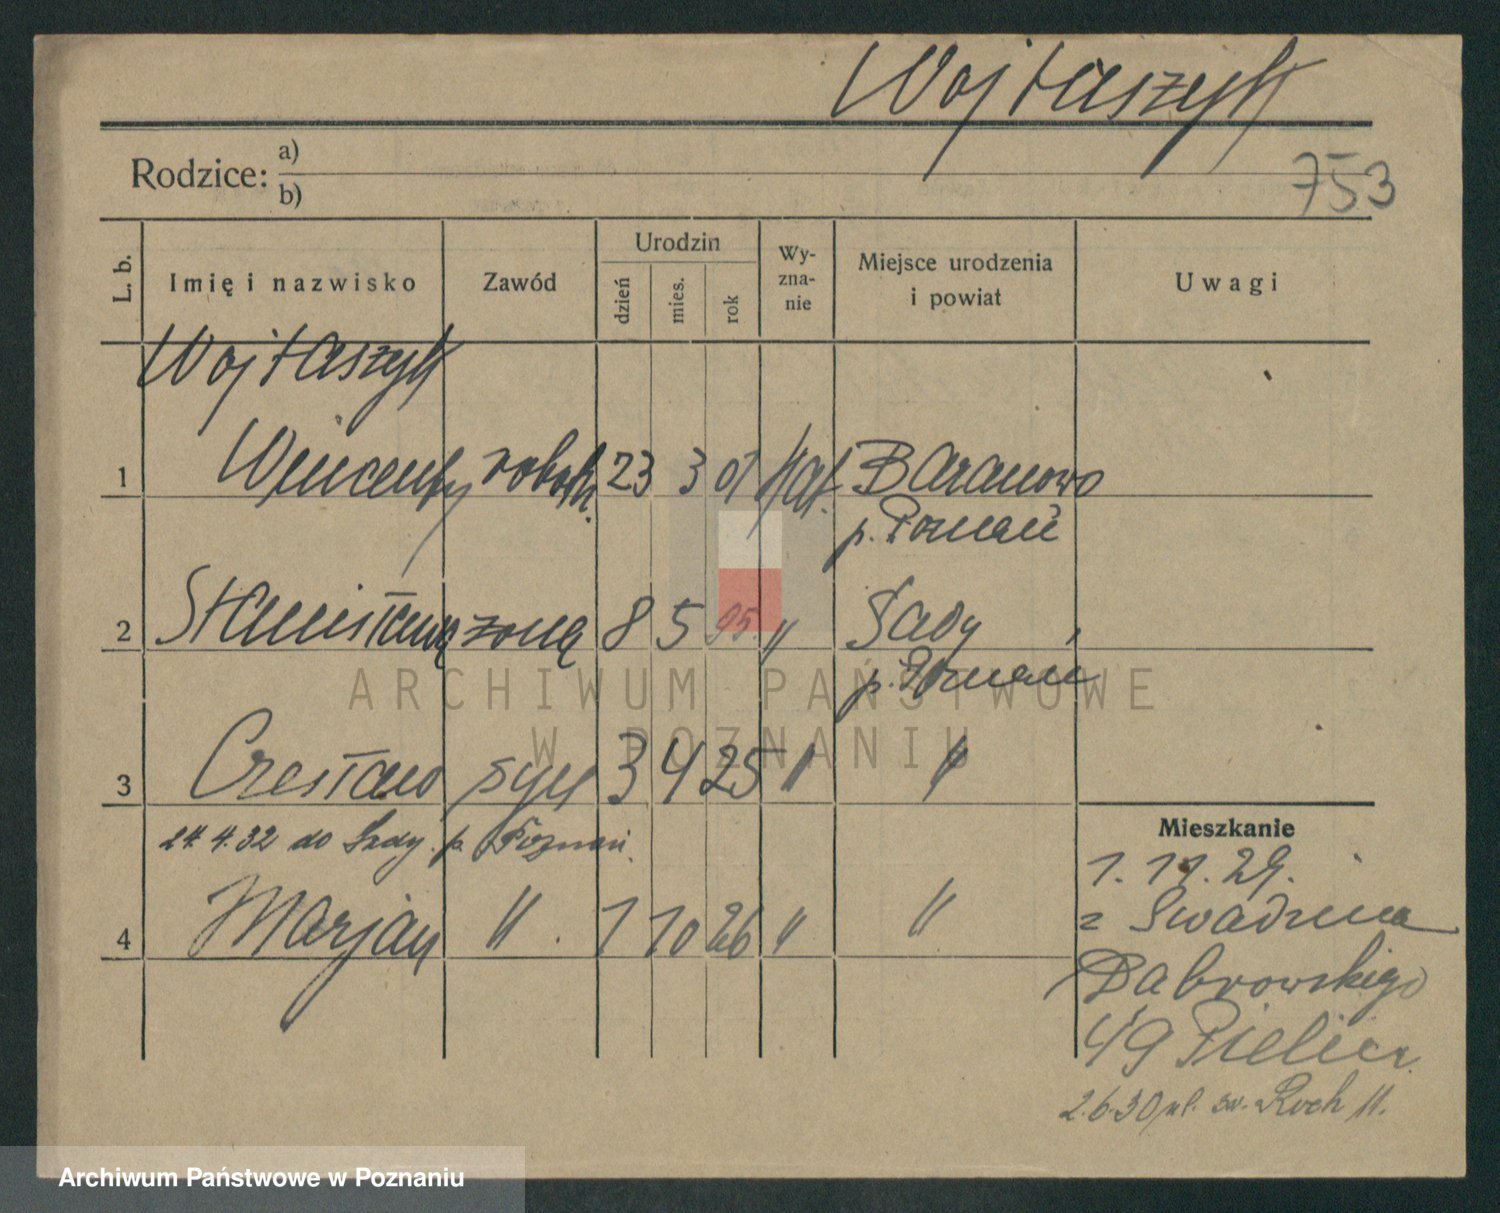 Wojtaszyk
Rodzice: a)
b)
753
L. b.
Imię i nazwisko
Zawód
Urodzin
dzień
mies.
rok
Wy-
zna-
nie
Miejsce urodzenia
i powiat
Uwagi
Wojtaszyk
1 Wincenty robotn. 23 3 01 kat. Baranowo
p. Poznań
2 Stanisława żona 8 5 95 " Sady
p. Poznań
3 Czesław syn 3 4 25 " "
24.4.32 do Sady. p. Poznań.
4 Marjan " 1 10 26 " "
Mieszkanie
1.11.29.
z Swadzima
Dąbrowskiego
49
2.6.30 ul. św. Roch 11.
ARCHIWUM PAŃSTWOWE
W POZNANIU
Archiwum Państwowe w Poznaniu